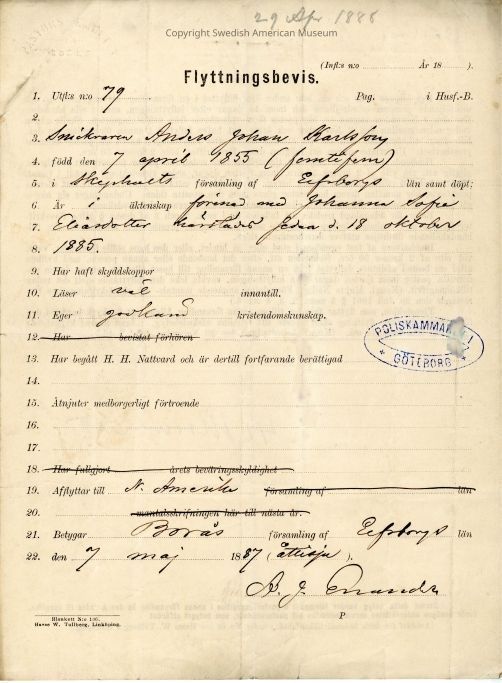 29 Apr 1886
Copyright Swedish American Museum
(Infl:s n:o År 18 ).
Flyttningsbevis.
1. Utfl:s n:o 79 Pag. i Husf.-B.
2.
3. Snickraren Anders Johan Karlsson
4. född den 7 april 1855 (femtefem)
5. i församling af Elfsborgs län samt döpt;
6. Är i äktenskap förenad med Johanna Sofia
7. Eliasdotter sedan d. 18 oktober
8. 1885.
9. Har haft skyddskoppor
10. Läser väl innantill.
11. Eger godkänd kristendomskunskap.
12. Har bevistat förhören
13. Har begått H. H. Nattvard och är dertill fortfarande berättigad
14.
15. Åtnjuter medborgerligt förtroende
16.
17.
18. Har fullgjort årets beväringsskyldighet
19. Afflyttar till N. Amerika församling af län
20. mantalsskrifningen här till nästa år.
21. Betygar Borås församling af Elfsborgs län
22. den 7 maj 1887 (åttisju).
A. J. Enander
P
Blankett N:o 136.
Harse W. Tullberg, Linköping.
POLISKAMMAR
GÖTEBORG